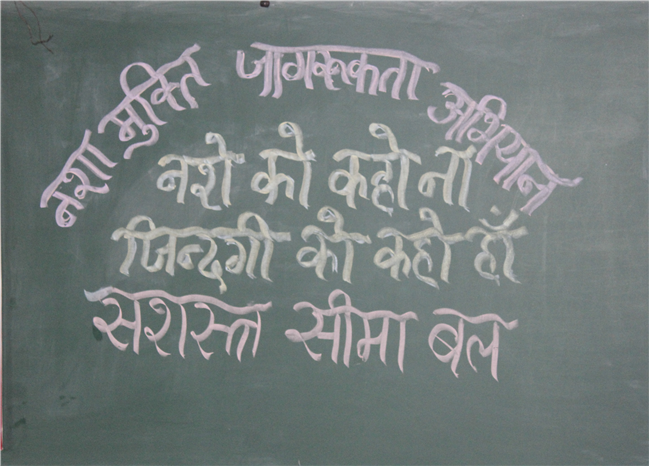 नशा मुक्ति जागरूकता अभियान
नशे को कहो नां
जिन्दगी को कहो हाँ
सशस्त्र सीमा बल